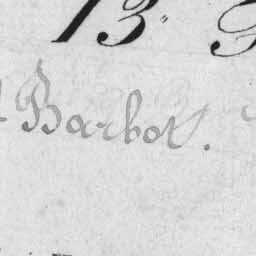 13
Barbot.